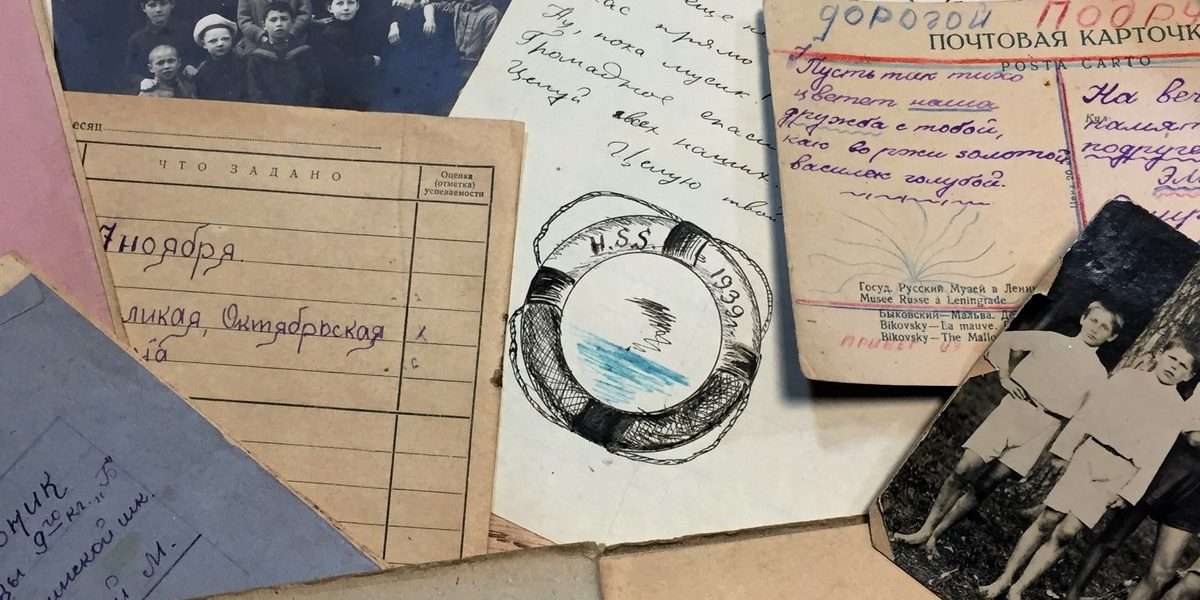 ЧТО ЗАДАНО
Оценка
(отметка)
успеваемости
7 ноября.
ликая, Октябрьская
ещё
прямо
Ну, пока
Громадное
Целуй всех наших.
Целую твой
H.S.S. 1939г.
дорогой
ПОЧТОВАЯ КАРТОЧК
POSTA CARTO
Пусть так тихо
цветет наша
дружба с тобой,
как во ржи золотой
василек голубой.
На веч
памят
подруге
Госуд. Русский Музей в Лени
Musée Russe à Leningrade
Быковский—Мальва.
Bikovsky—La mauve.
Bikovsky—The Mallo
ПРИВЕТ ИЗ
9го кл. „Б"
шк.
М.